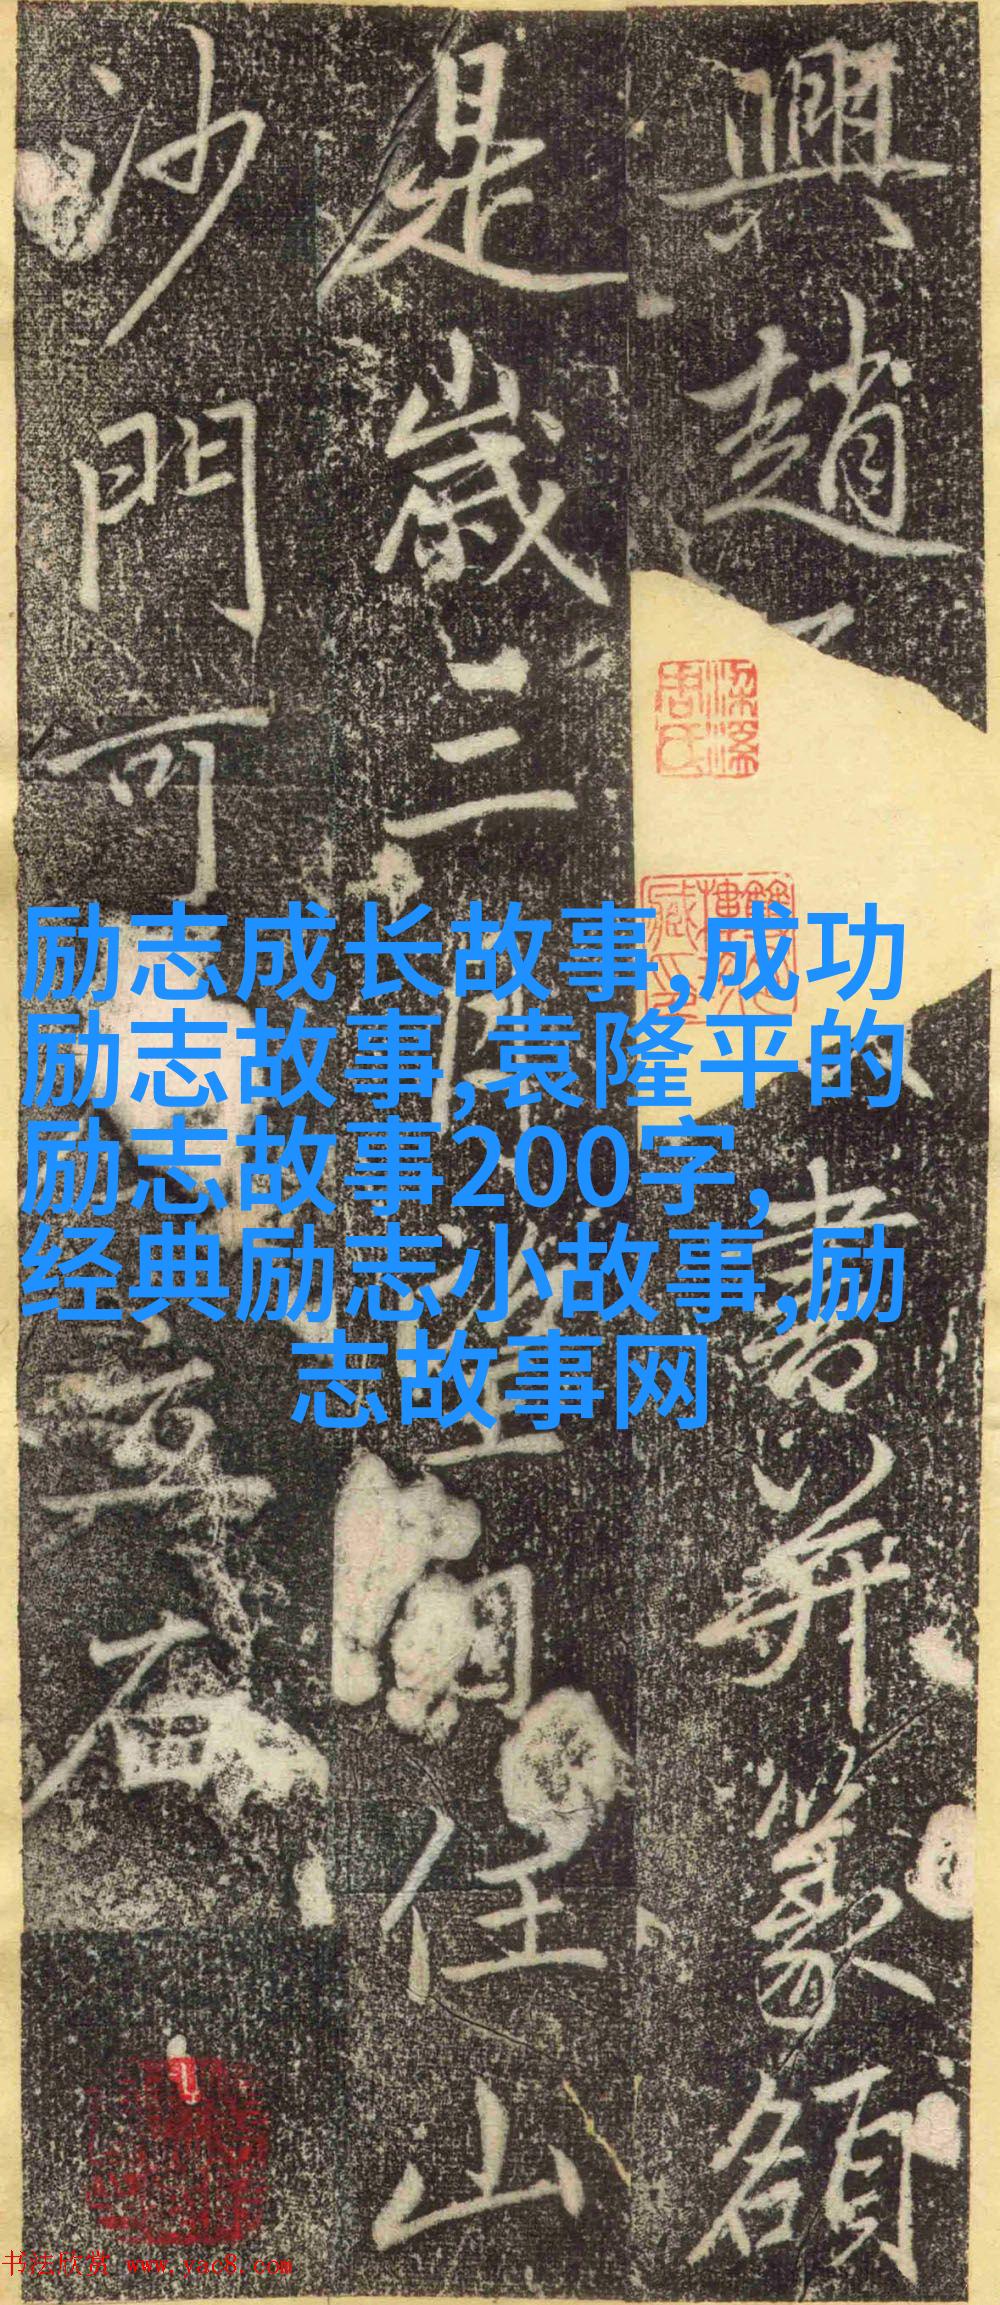 興趙
書并篆額
是歲三月
任山
沙門可
励志成长故事,成功
励志故事,袁隆平的
励志故事200字,
经典励志小故事,励
志故事网
书法欣赏 www.yac8.com